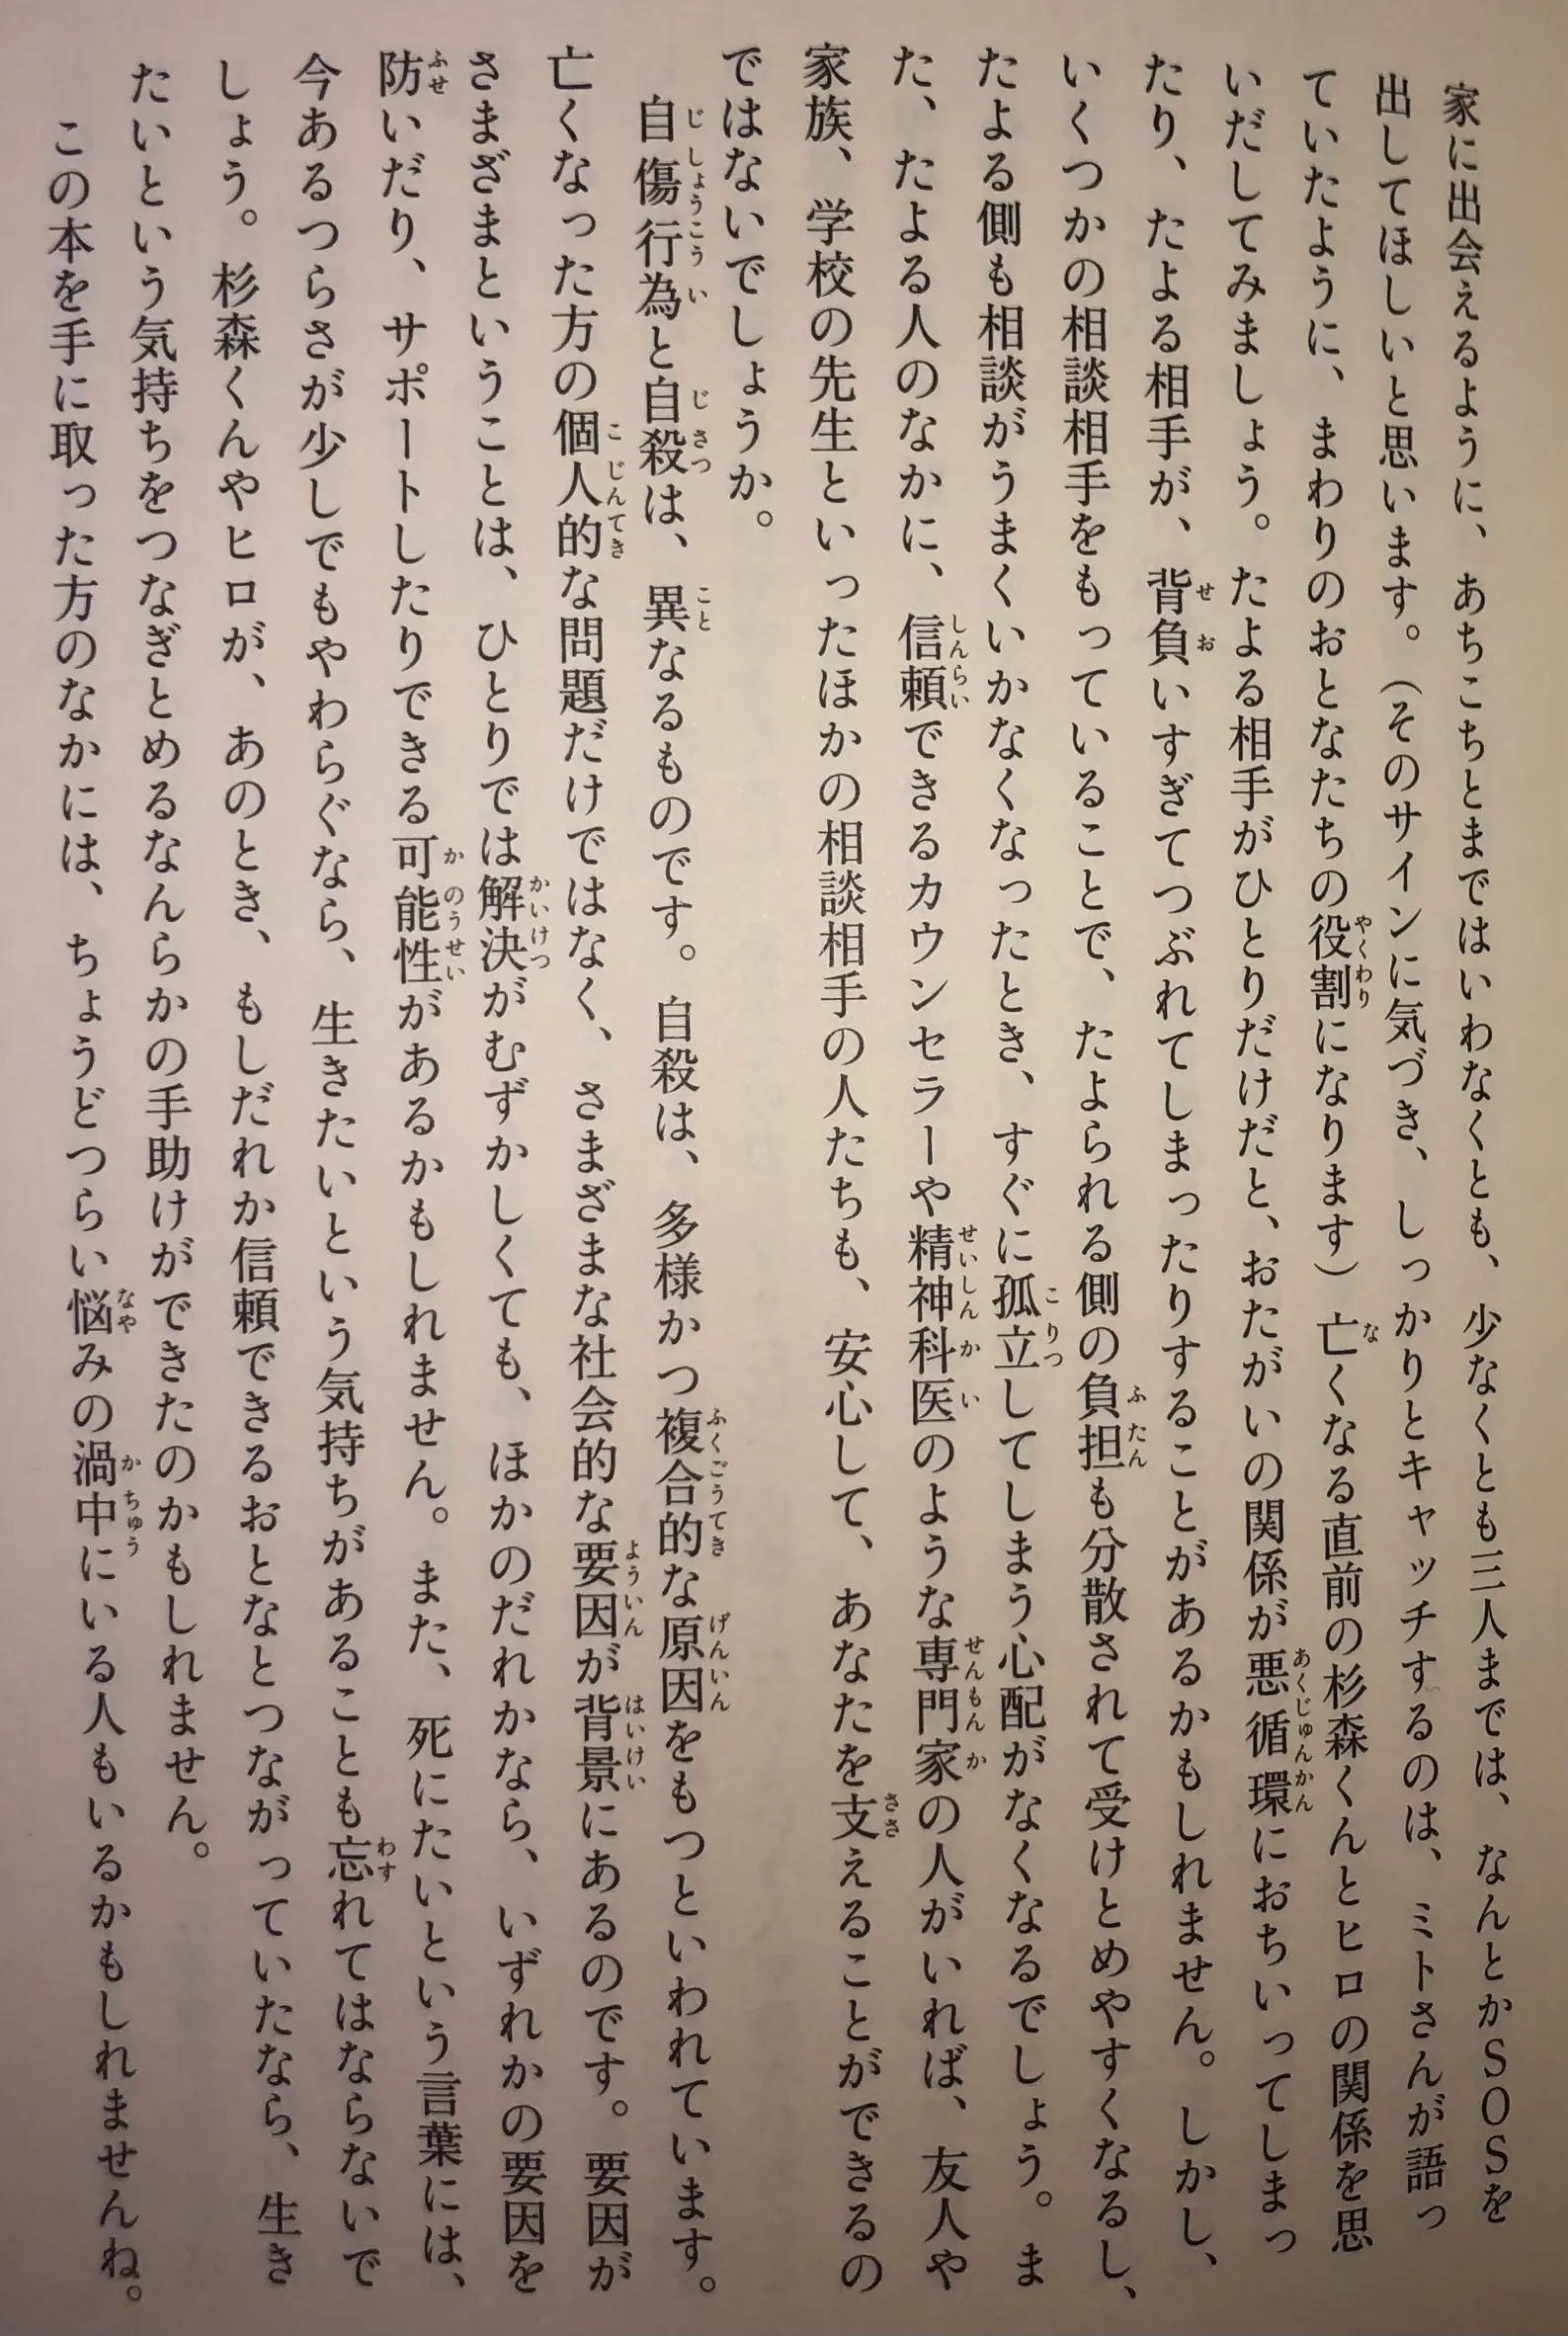 家に出会えるように、あちこちとまではいわなくとも、少なくとも三人までは、なんとかＳＯＳを
出してほしいと思います。（そのサインに気づき、しっかりとキャッチするのは、ミトさんが語っ
ていたように、まわりのおとなたちの役割になります）亡くなる直前の杉森くんとヒロの関係を思
いだしてみましょう。たよる相手がひとりだけだと、おたがいの関係が悪循環におちいってしまっ
たり、たよる相手が、背負いすぎてつぶれてしまったりすることがあるかもしれません。しかし、
いくつかの相談相手をもっていることで、たよられる側の負担も分散されて受けとめやすくなるし、
たよる側も相談がうまくいかなくなったとき、すぐに孤立してしまう心配がなくなるでしょう。ま
た、たよる人のなかに、信頼できるカウンセラーや精神科医のような専門家の人がいれば、友人や
家族、学校の先生といったほかの相談相手の人たちも、安心して、あなたを支えることができるの
ではないでしょうか。
自傷行為と自殺は、異なるものです。自殺は、多様かつ複合的な原因をもつといわれています。
亡くなった方の個人的な問題だけではなく、さまざまな社会的な要因が背景にあるのです。要因が
さまざまということは、ひとりでは解決がむずかしくても、ほかのだれかなら、いずれかの要因を
防いだり、サポートしたりできる可能性があるかもしれません。また、死にたいという言葉には、
今あるつらさが少しでもやわらぐなら、生きたいという気持ちがあることも忘れてはならないで
しょう。杉森くんやヒロが、あのとき、もしだれか信頼できるおとなとつながっていたなら、生き
たいという気持ちをつなぎとめるなんらかの手助けができたのかもしれません。
この本を手に取った方のなかには、ちょうどつらい悩みの渦中にいる人もいるかもしれませんね。